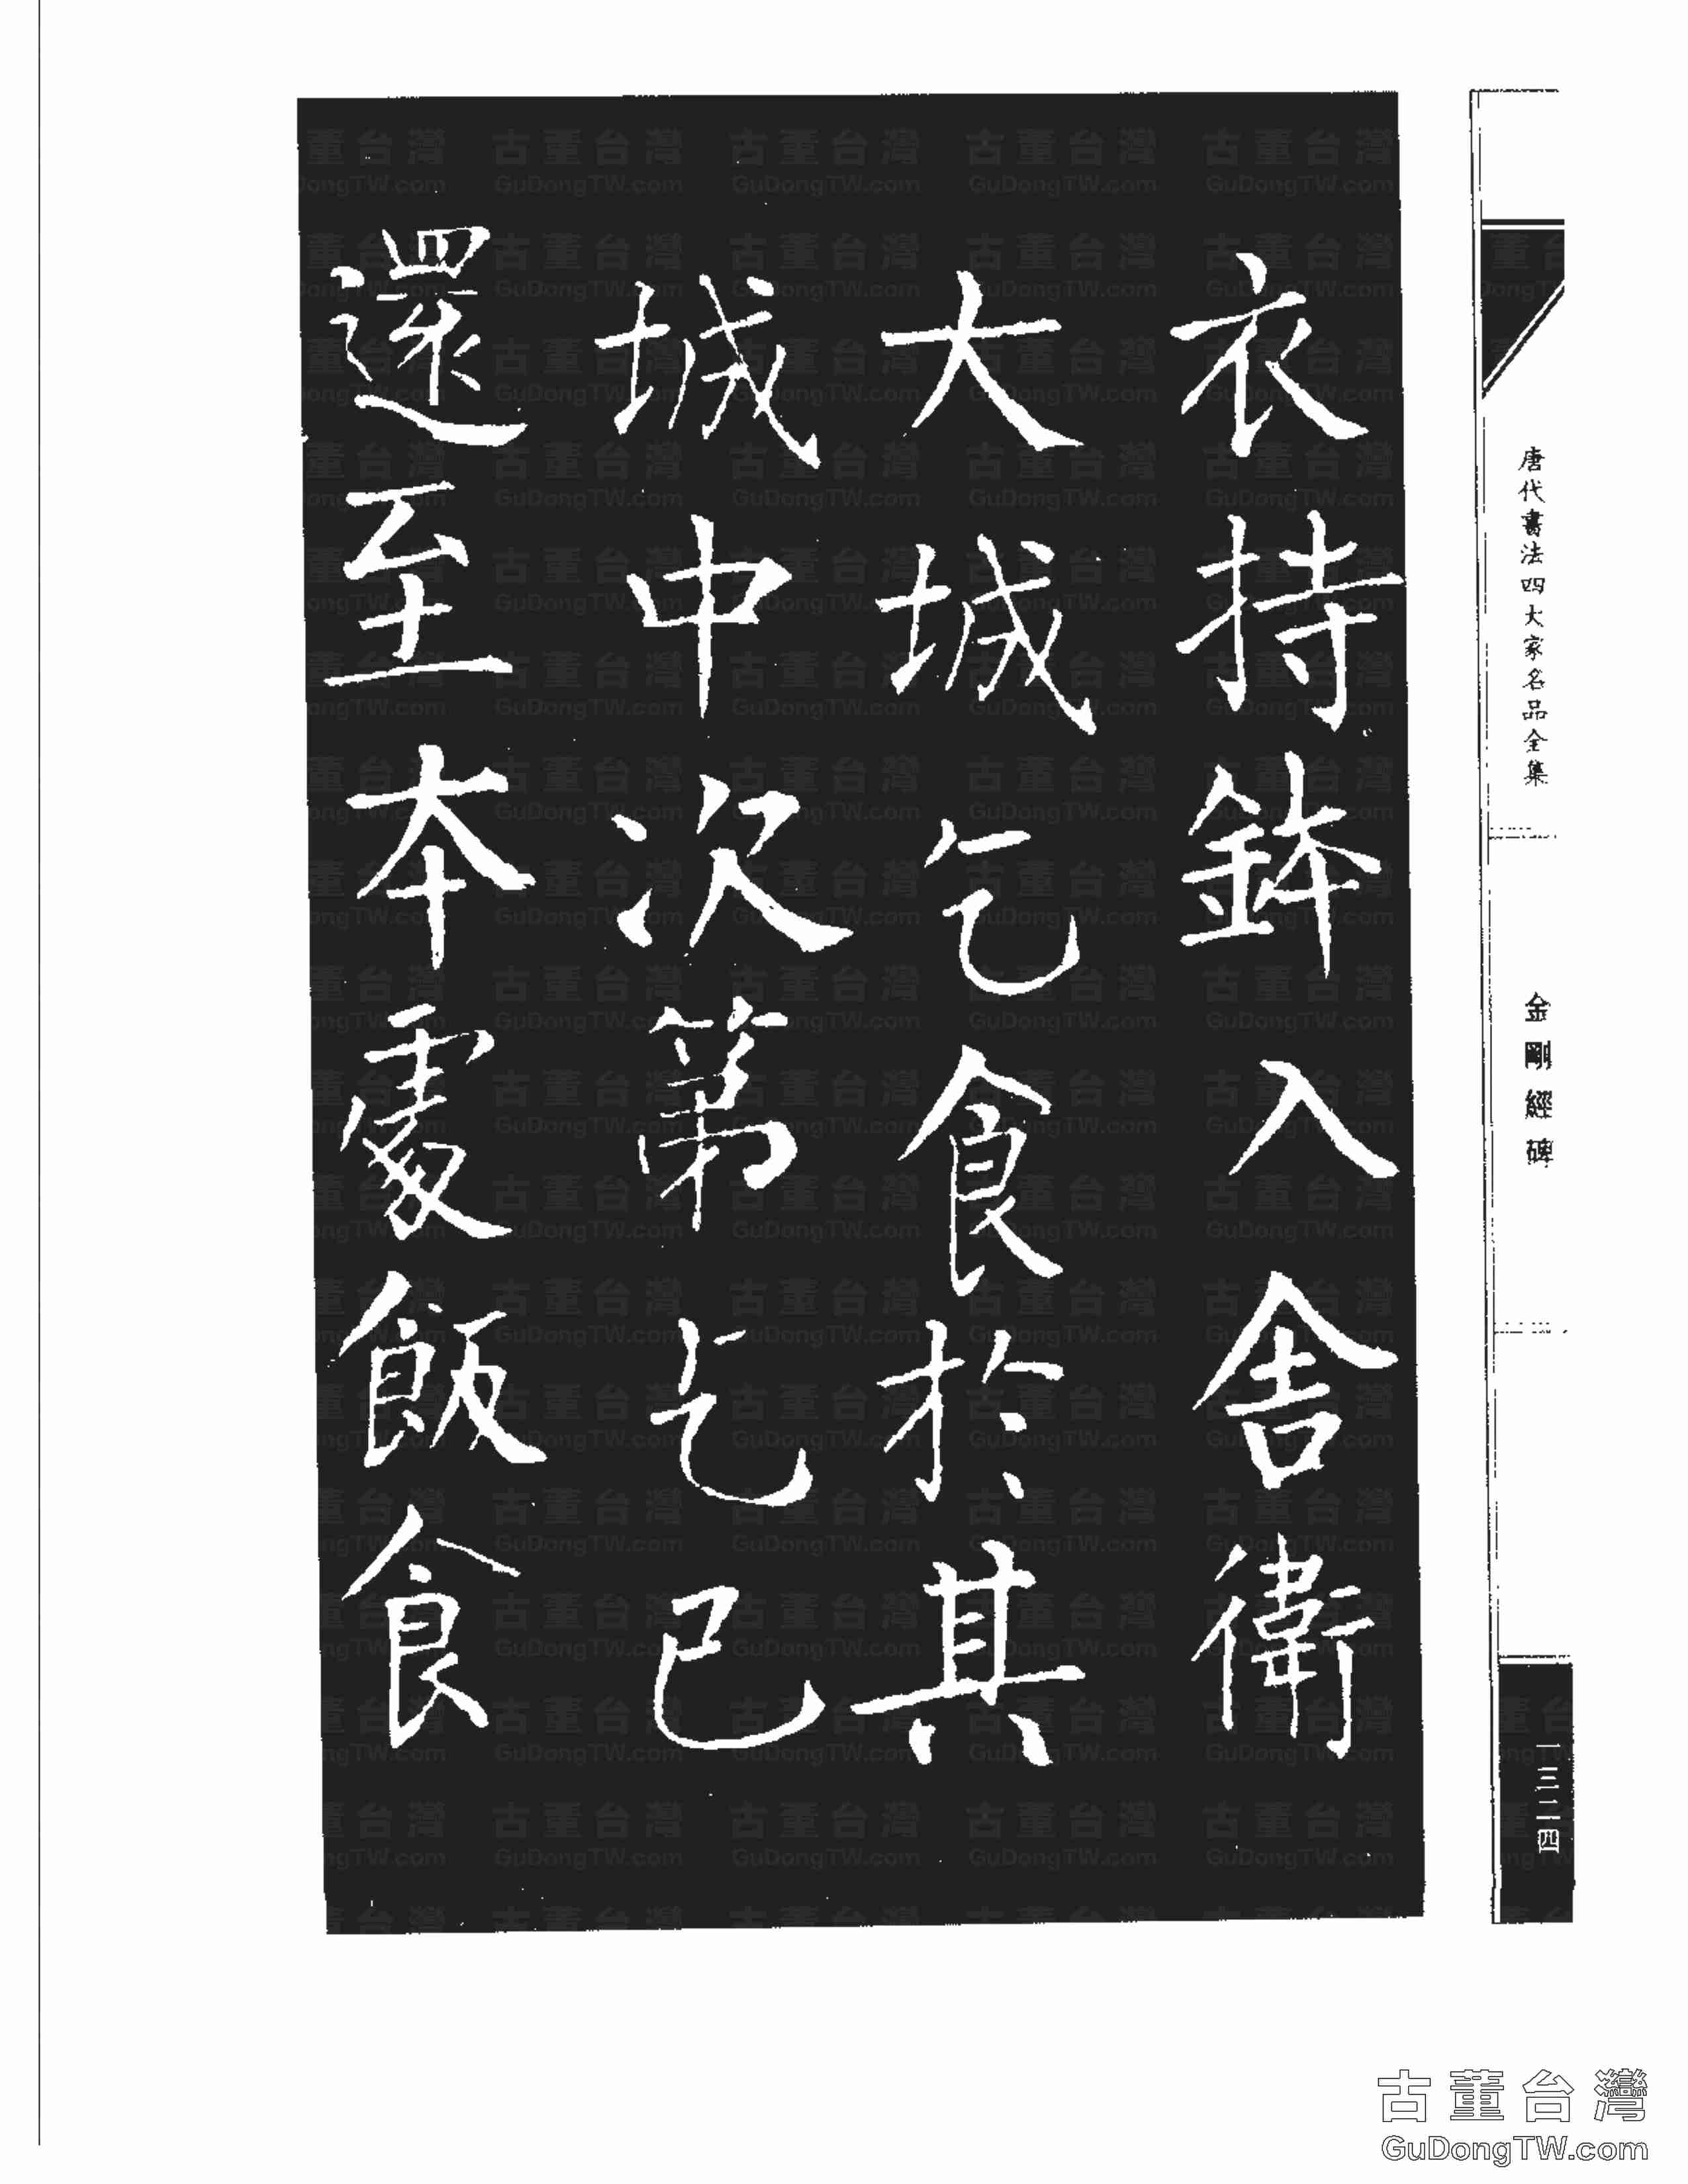 衣持鉢入舍衛
大城乞食於其
城中次第乞已
還至本處飯食
唐代書法四大家名品全集
金剛經碑
一三二四
古董台灣
GuDongTW.com